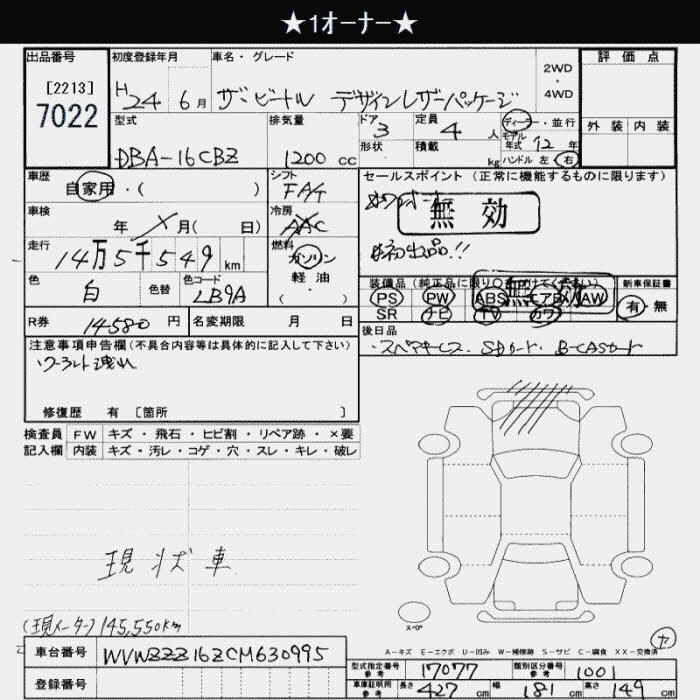 ★1オーナー★
出品番号
[2213]
7022
初度登録年月
H24 6月
車名・グレード
ザ・ビートル デザインレザーパッケージ
2WD
・
4WD
評価点
外装 内装
型式
DBA-16CBZ
排気量
1200 cc
ドア
3
形状
定員
4 人
積載
kg
ディーラー・並行
モデル
年式 12 年
ハンドル 左 右
車歴
自家用・( )
シフト
FA7
セールスポイント (正常に機能するものに限ります)
無効
初出品!!
車検
年 月( 日)
冷房
AAC
走行
14万5千549 km
燃料
ガソリン
軽油
( ・ )
色
白
色替
色コード
LB9A
装備品 (純正品に限り○を付けてください)
無効
PS PW ABS エアB AW
SR ナビ TV カワ
新車保証書
有・無
R券
14580 円
名変期限 月 日
後日品
・スペアキーレス. SDカード. B-CASカード
注意事項申告欄 (不具合内容等は具体的に記入して下さい)
・クーラント洩れ
修復歴 有 [箇所 ]
検査員 FW キズ・飛石・ヒビ割・リペア跡・×要
記入欄 内装 キズ・汚レ・コゲ・穴・スレ・キレ・破レ
現状車
(現メーター) 145,550km
スペア
A-キズ E-エクボ U-凹み W-補修跡 S-サビ C-腐食 XX-交換済
車台番号 WVWZZZ16ZCM630995
登録番号
型式指定番号
参考
17077
類別区分番号
参考
1001
車庫証明用
参考
長さ 427 cm 幅 181 cm 高さ 149 cm